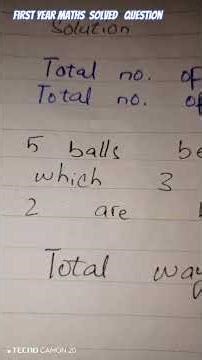 FIRST YEAR MATHS SOLVED QUESTION
Solution
Total no. of
Total no. of
5 balls be
which 3
2 are
Total way
TECNO CAMON 20